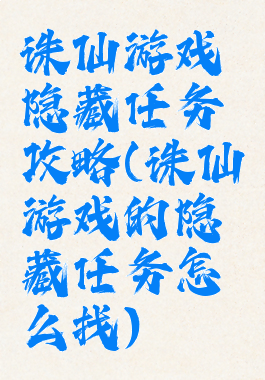 诛仙游戏
隐藏任务
攻略(诛仙
游戏的隐
藏任务怎
么找)